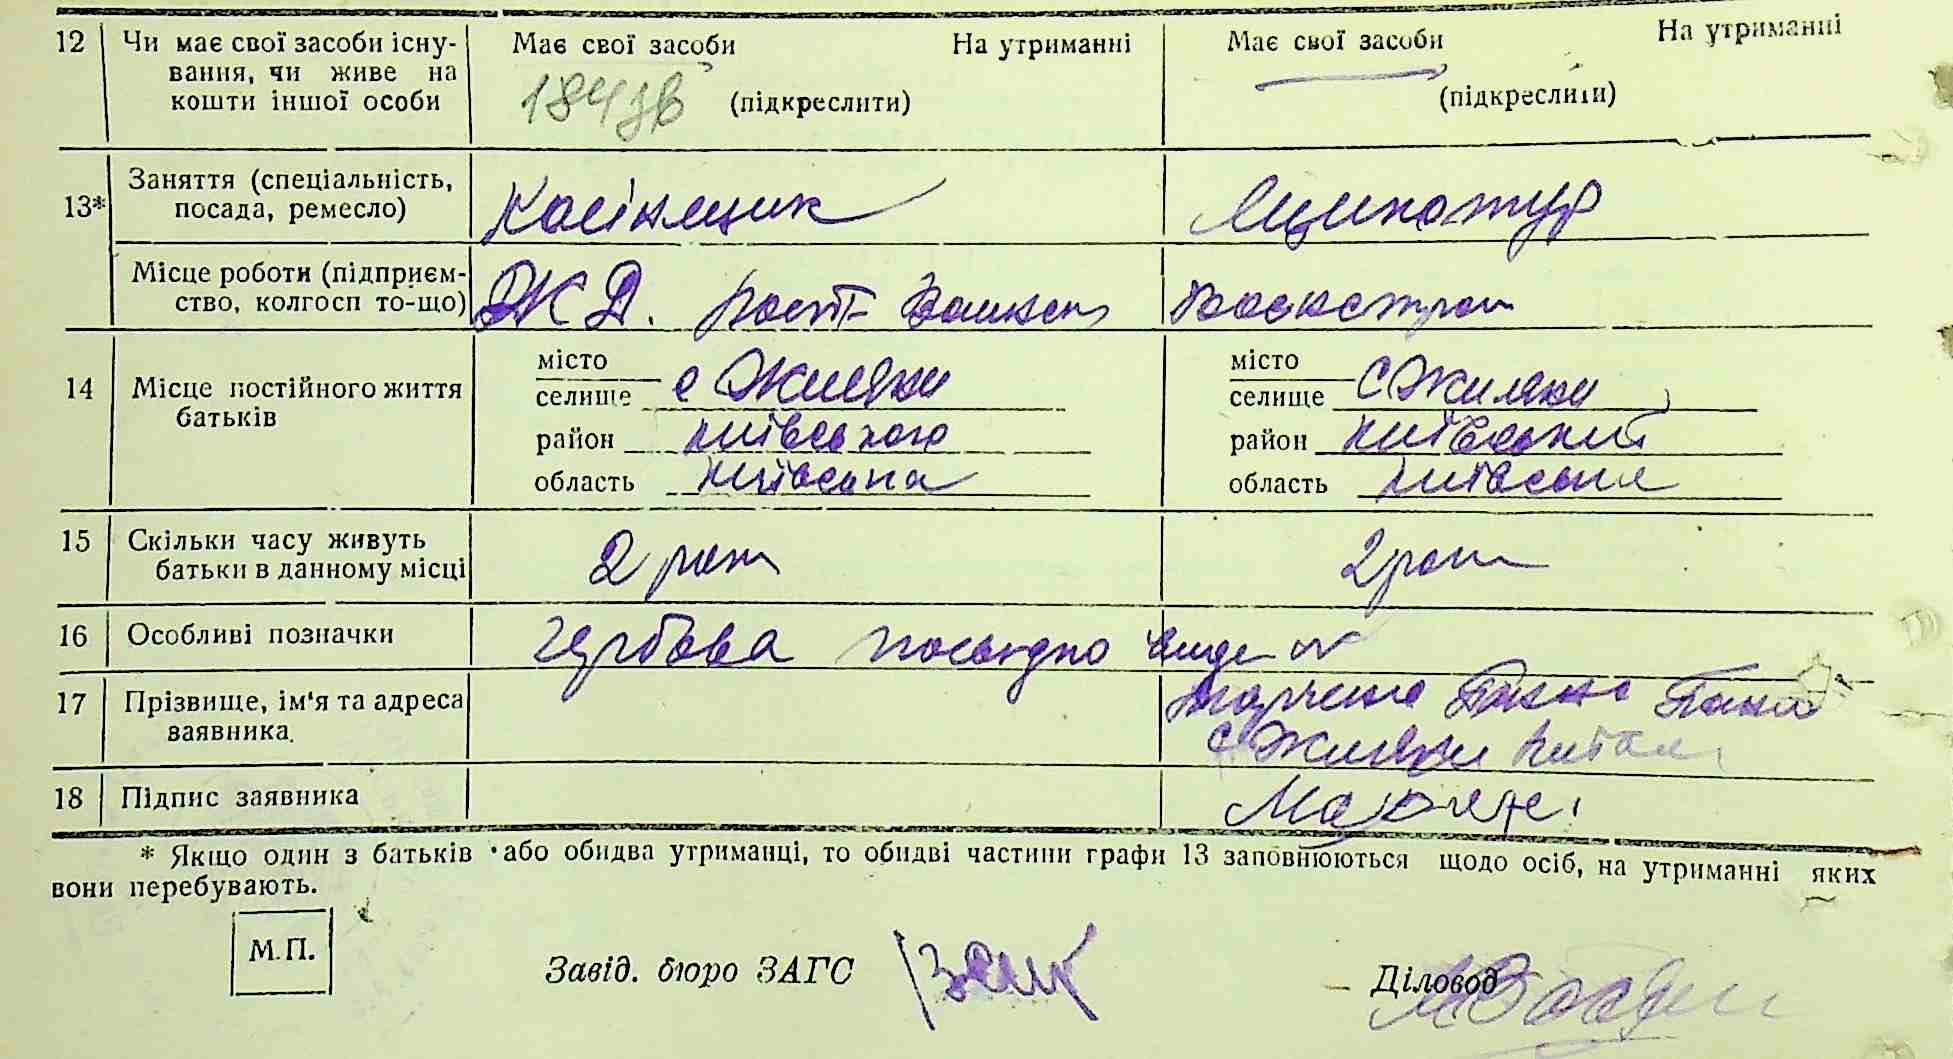 12 Чи має свої засоби існу-
вання, чи живе на
кошти іншої особи
Має свої засоби На утриманні
(підкреслити)
Має свої засоби На утриманні
(підкреслити)
13* Заняття (спеціальність,
посада, ремесло)
Місце роботи (підприєм-
ство, колгосп то-що)
Ж Д.
14 Місце постійного життя
батьків
місто
селище с Жиляни
район київського
область київська
місто
селище С Жиляни
район київський
область київська
15 Скільки часу живуть
батьки в данному місці
2 роки 2 роки
16 Особливі позначки
17 Прізвище, ім'я та адреса
заявника.
с Жиляни
18 Підпис заявника
* Якщо один з батьків або обидва утриманці, то обидві частини графи 13 заповнюються щодо осіб, на утриманні яких
вони перебувають.
М.П.
Завід. бюро ЗАГС
Діловод